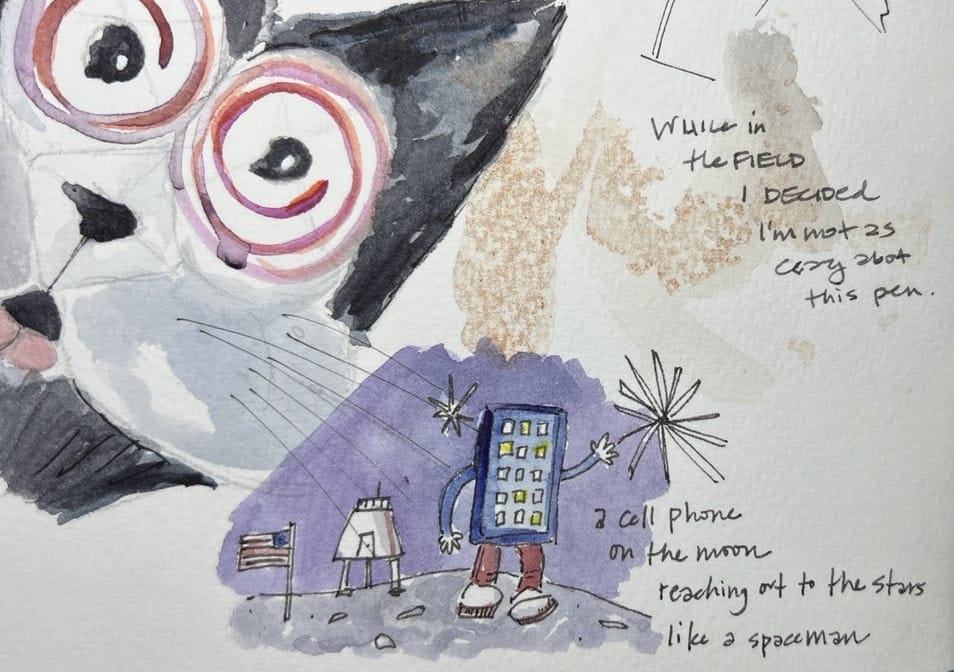 While in
the FIELD
I DECIDED
I'm not as
cazy abot
this pen.
a cell phone
on the moon
reaching out to the stars
like a spaceman